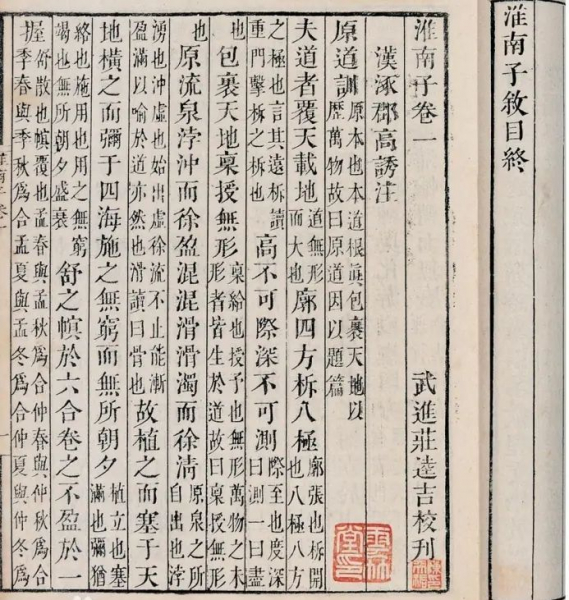 淮南子敘目終
淮南子卷一
漢涿郡高誘注 武進莊逵吉校刊
原道訓 原本也本道根眞包裹天地以歷萬物故曰原道因以題篇
夫道者覆天載地 道無形而大也 廓四方柝八極 廓張也柝開也八極八方
之極也言其遠柝讀重門擊柝之柝也 高不可際深不可測 際至也度深曰測一曰盡
也 包裹天地稟授無形 稟給也授予也無形萬物之未形者皆生於道故曰稟授無形
也 原流泉浡沖而徐盈混混滑滑濁而徐淸 原泉之所自出也浡
湧也沖虛也始出虛徐流不止能漸盈滿以喻於道亦然也滑讀曰骨也 故植之而塞于天
地橫之而彌于四海施之無窮而無所朝夕 植立也塞滿也彌猶
絡也施用也用之無窮竭也無所朝夕盛衰 舒之幎於六合卷之不盈於一
握 舒散也幎覆也孟春與孟秋爲合仲春與仲秋爲合季春與季秋爲合孟夏與孟冬爲合仲夏與仲冬爲